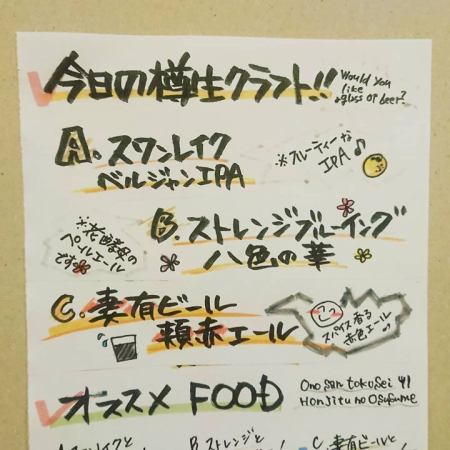 今日の樽生クラフト!!
Would you
like
a glass of beer?
A. スワンレイク
ベルジャンIPA
※フルーティーな
IPA♪
B. ストレンジブルーイング
八色の華
※花酵母の
ペールエール
です
C. 妻有ビール
頬赤エール
スパイス香る
赤色エール♪
オススメ FOOD
Ono san tokusei
Honjitu no Osusume
A. スワンレイクと
B. ストレンジと
C. 妻有ビールと